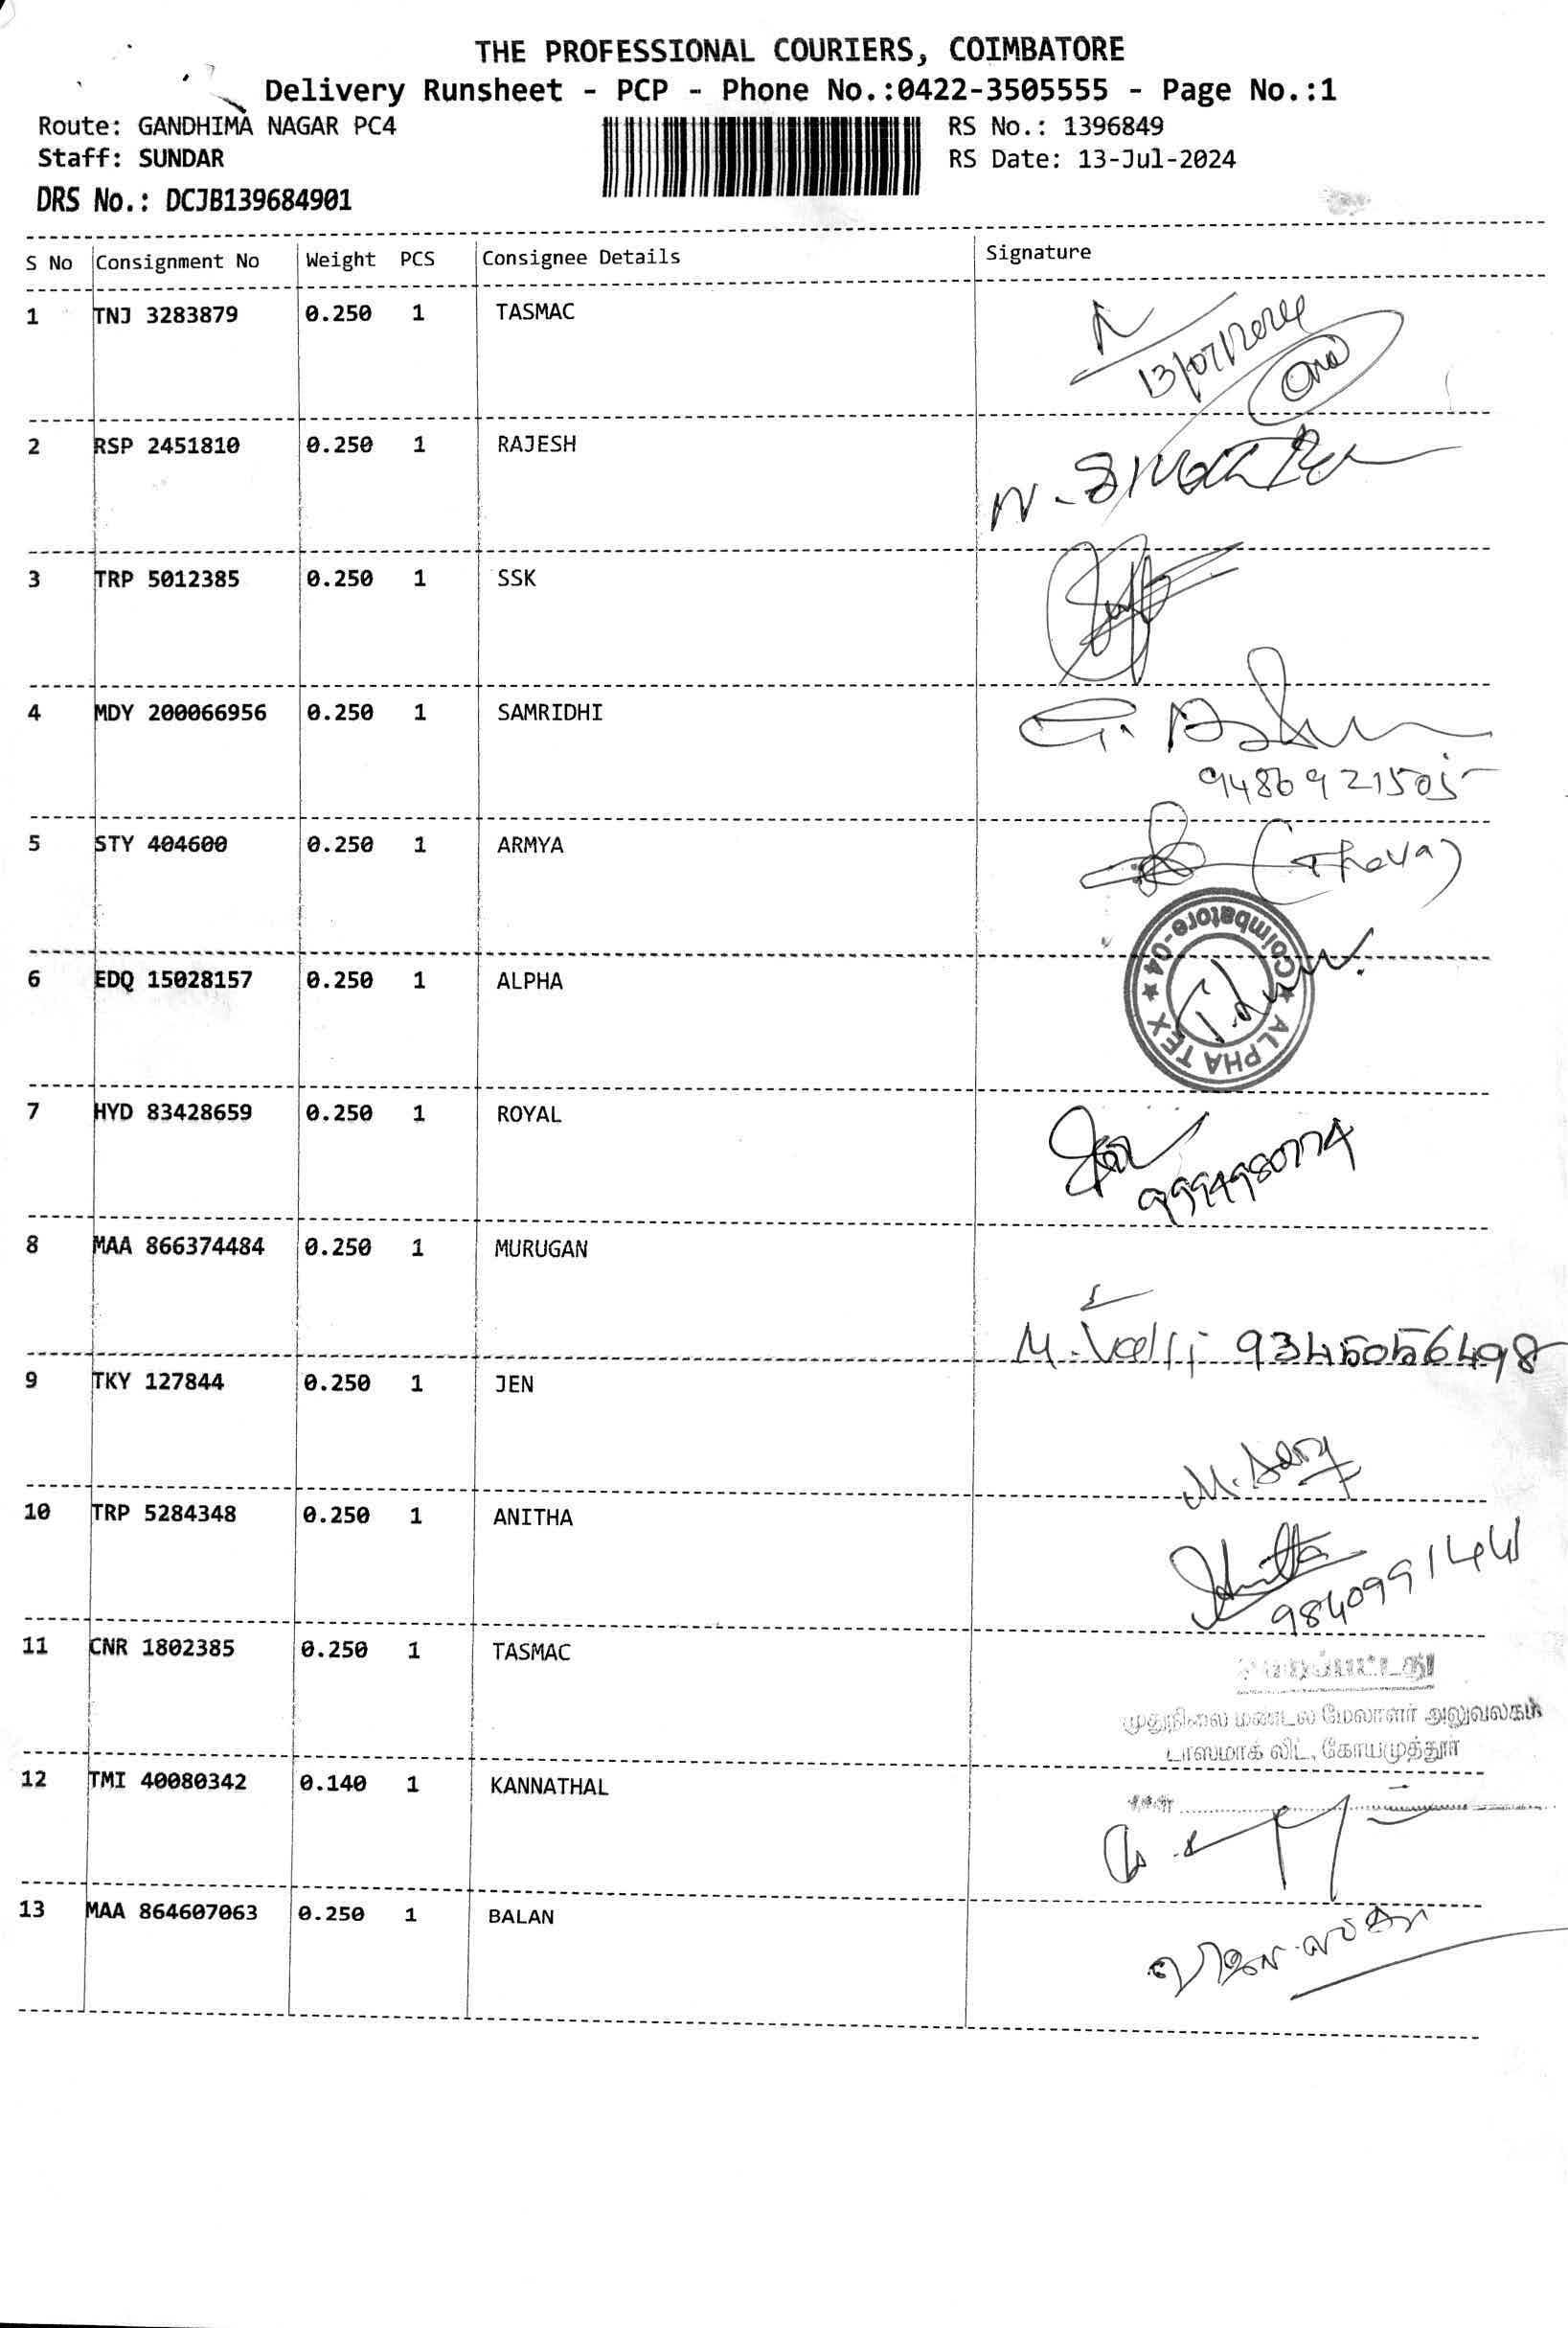 THE PROFESSIONAL COURIERS, COIMBATORE
Delivery Runsheet - PCP - Phone No.:0422-3505555 - Page No.:1
Route: GANDHIMA NAGAR PC4
RS No.: 1396849
Staff: SUNDAR
RS Date: 13-Jul-2024
DRS No.: DCJB139684901
S No Consignment No Weight PCS Consignee Details Signature
1 TNJ 3283879 0.250 1 TASMAC
13/07/2024
2 RSP 2451810 0.250 1 RAJESH
3 TRP 5012385 0.250 1 SSK
4 MDY 200066956 0.250 1 SAMRIDHI
9486921505
5 STY 404600 0.250 1 ARMYA
6 EDQ 15028157 0.250 1 ALPHA
ALPHA TEX ★ Coimbatore-04 ★
7 HYD 83428659 0.250 1 ROYAL
9994980774
8 MAA 866374484 0.250 1 MURUGAN
9345056498
9 TKY 127844 0.250 1 JEN
10 TRP 5284348 0.250 1 ANITHA
Anitha
9840991441
11 CNR 1802385 0.250 1 TASMAC
முதுநிலை மண்டல மேலாளர் அலுவலகம்
டாஸ்மாக் லிட், கோயமுத்தூர்
12 TMI 40080342 0.140 1 KANNATHAL
நாள்
13 MAA 864607063 0.250 1 BALAN